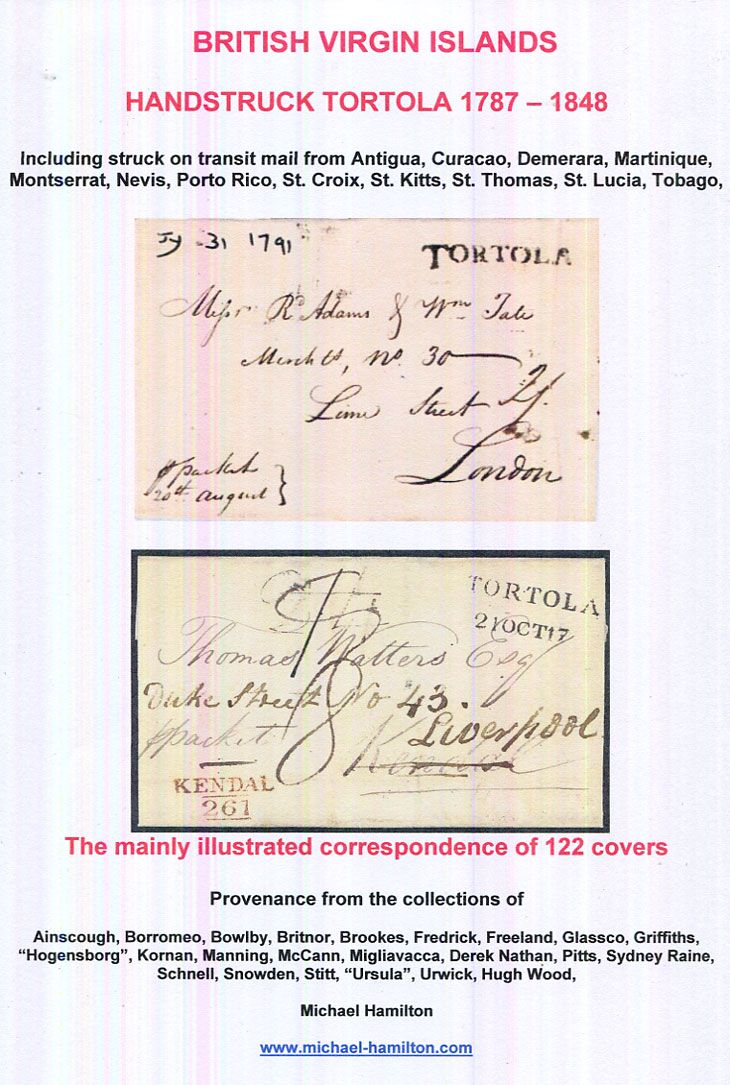 BRITISH VIRGIN ISLANDS
HANDSTRUCK TORTOLA 1787 – 1848
Including struck on transit mail from Antigua, Curacao, Demerara, Martinique,
Montserrat, Nevis, Porto Rico, St. Croix, St. Kitts, St. Thomas, St. Lucia, Tobago,
Jy 31 1791
TORTOLA
Messrs Rd Adams & Wm Tate
Merchts, No. 30
Lime Street
London
p packet
20th august
TORTOLA
21OCT17
Thomas Watters Esq
Duke Street No 43.
Liverpool
p packet
Kendal
KENDAL
261
The mainly illustrated correspondence of 122 covers
Provenance from the collections of
Ainscough, Borromeo, Bowlby, Britnor, Brookes, Fredrick, Freeland, Glassco, Griffiths,
“Hogensborg”, Kornan, Manning, McCann, Migliavacca, Derek Nathan, Pitts, Sydney Raine,
Schnell, Snowden, Stitt, “Ursula”, Urwick, Hugh Wood,
Michael Hamilton
www.michael-hamilton.com